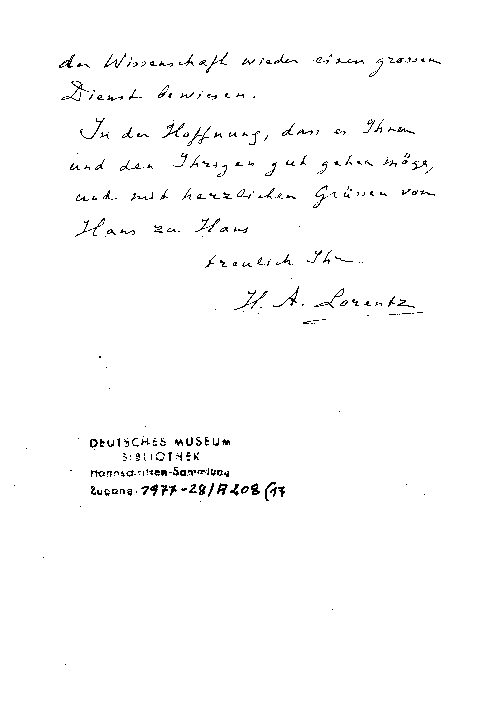 der Wissenschaft wieder einen grossen
Dienst bewiesen.
In der Hoffnung, dass es Ihnen
und den Ihrigen gut gehen möge,
und mit herzlichen Grüssen von
Haus zu Haus
treulich Ihr
H. A. Lorentz
DEUTSCHES MUSEUM
BIBLIOTHEK
Handschriften-Sammlung
Zugang: 1977-28/A208(17